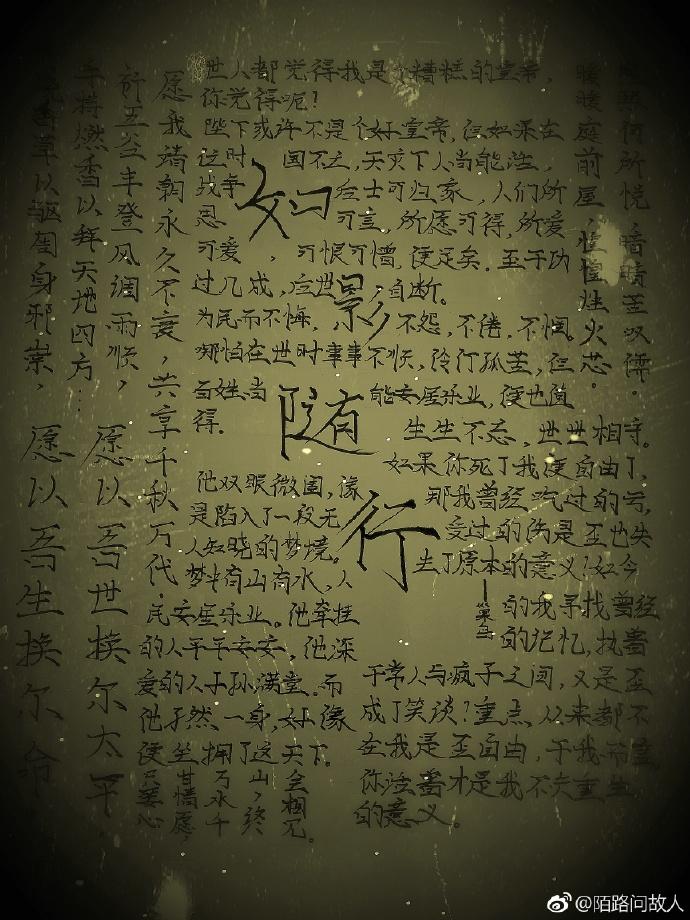 世人都觉得我是个糟糕的皇帝,
你觉得呢?
陛下或许不是个好皇帝,但如果在
位时 国不亡,天灾下人尚能活,
战争 后士可归家,人们所
思 可言,所愿可得,所爱
可爱 ,可恨可憎,便足矣.至于功
过几成,后世 自断。
为民而不悔, 不怨,不倦,不惘。
哪怕在世时事事不顺,伶仃孤苦,但
百姓尚 能安居乐业,便也值
得.
如影随行
生生不忘,世世相守。
如果你死了我便自由了,
那我曾经吃过的亏,
受过的伤是否也失
去了原本的意义?如今
的我寻找曾经
的记忆,执着
于常人与疯子之间,又是否
成了笑谈?重点从来都不
在我是否自由,于我而言,
你活着才是我不失重生
的意义。
他双眼微阖,像
是陷入了一段无
人知晓的梦境。
梦中有山有水,人
民安居乐业。他牵挂
的人平平安安,他深
爱的人子孙满堂.而
他孑然一身,好像
便坐拥了这天下。
只要心
甘情愿,
万水千
山,终
会相见.
暖暖庭前屋,惶惶灶火芯。
愿我靖朝永久不衰,共享千秋万代.
祈五谷丰登风调雨顺,
手持燃香以拜天地四方…
草以驱周身邪祟,
愿以吾世换尔太平
愿以吾生换尔命
@陌路问故人